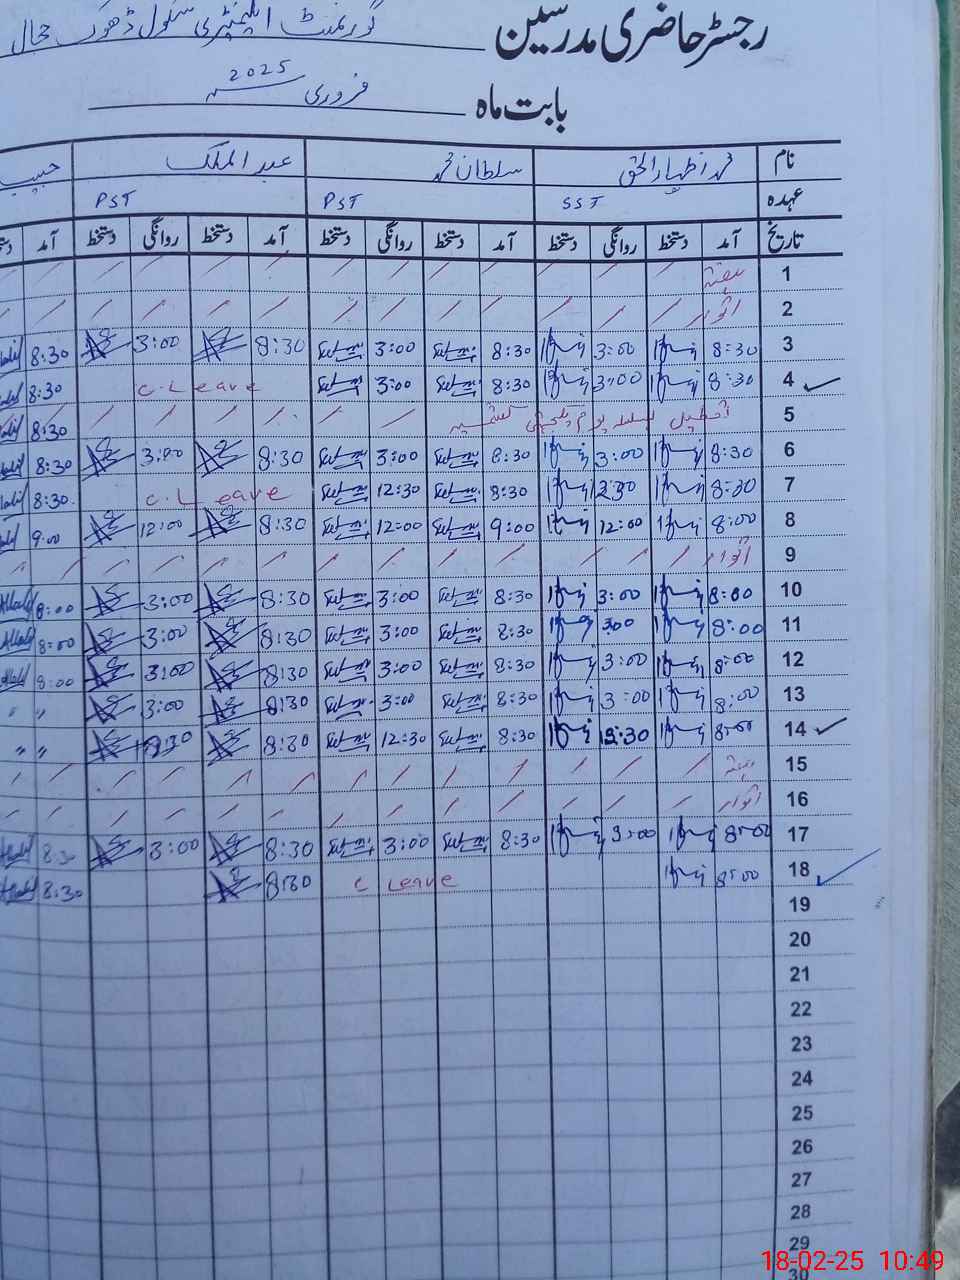 رجسٹر حاضری مدرسین گورنمنٹ ایلیمنٹری سکول ڈھوک محال
بابت ماہ فروری 2025
نام محمد اظہار الحق سلطان محمد عبد الملک حبیب
عہدہ SST PST PST
تاریخ آمد دستخط روانگی دستخط آمد دستخط روانگی دستخط آمد دستخط روانگی دستخط آمد
1 ہفتہ
2 اتوار
3 8:30 3:00 8:30 3:00 8:30 3:00 8:30
4 8:30 3:00 8:30 3:00 C. Leave 8:30
5 تعطیل بسلسلہ یوم یکجہتی کشمیر 8:30
6 8:30 3:00 8:30 3:00 8:30 3:00 8:30
7 8:30 12:30 8:30 12:30 C. Leave 8:30
8 8:00 12:00 9:00 12:00 8:30 12:00 9:00
9 اتوار
10 8:00 3:00 8:30 3:00 8:30 3:00 8:00
11 8:00 3:00 8:30 3:00 8:30 3:00 8:00
12 8:00 3:00 8:30 3:00 8:30 3:00 8:00
13 8:00 3:00 8:30 3:00 8:30 3:00 " "
14 8:00 12:30 8:30 12:30 8:30 " "
15 ہفتہ
16 اتوار
17 8:00 3:00 8:30 3:00 8:30 3:00 8:30
18 8:00 C Leave 8:30 8:30
19
20
21
22
23
24
25
26
27
28
29
30
18-02-25 10:49